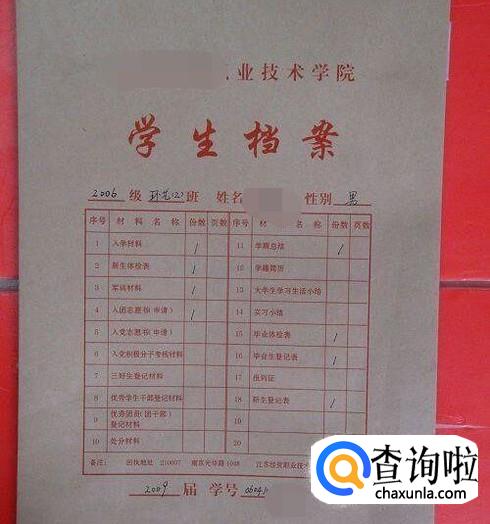 业技术学院
学生档案
2006 级 环艺(2) 班 姓名 性别 男
序号 材料名称 份数 页数 序号 材 名称 份数 页数
1 入学材料 1 11 学期总结 1
2 新生体检表 1 12 学籍简历
3 军训材料 1 13 大学生学习生活小结
4 入团志愿书(申请) 1 14 实习小结
5 入党志愿书(申请) 15 毕业体检表 1
6 入党积极分子考核材料 16 毕业生登记表 1
7 三好生登记材料 17 报到证
8 优秀学生干部登记材料 18 新生登记表 1
9 优秀团员(团干部)登记材料 19
10 处分材料 20
备注: 回执地址 210007 南京光华路 江苏经贸职业技术
2009 届 学号
查询啦
chaxunla.com